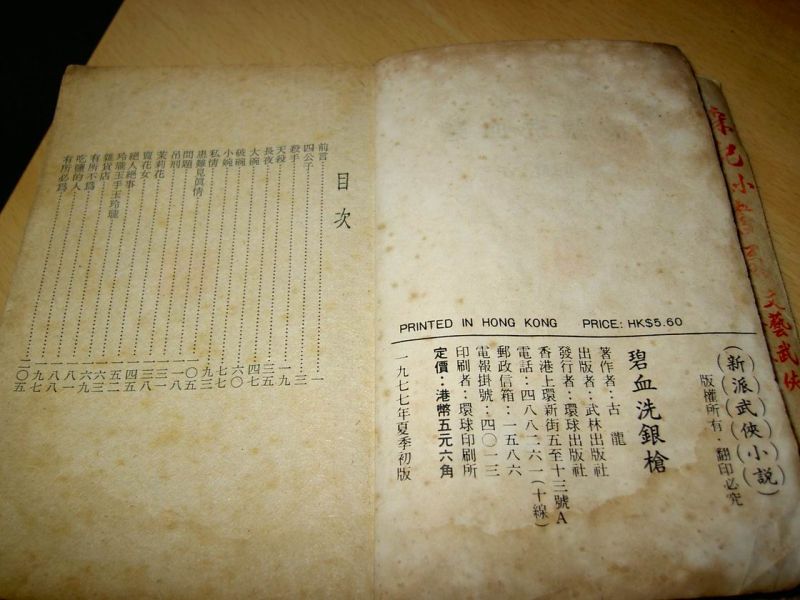 文藝武俠
(新派武俠小説)
版權所有·翻印必究
碧血洗銀槍
著作者：古龍
出版者：武林出版社
發行者：環球出版社
香港上環新街五至十三號A
電話：四八八二六一(十線)
郵政信箱：一五八六
電報掛號：四〇一三
印刷者：環球印刷所
定價：港幣五元六角
一九七七年夏季初版
PRINTED IN HONG KONG PRICE: HK$5.60
目次
前言 一
四公子 三
殺手 一九
天殺 三五
長夜 四七
大碗 六〇
破碗 七七
小碗 九三
私情 一〇五
患難見真情 一一八
問題 一三一
吊刑 一三八
茉莉花 一四五
賣花女 一五二
絕人絕事 一六三
玲瓏玉手玉玲瓏 一六九
雜貨店 一八一
有所不為 一八八
吃鹽的人 一九七
有所必為 二〇五